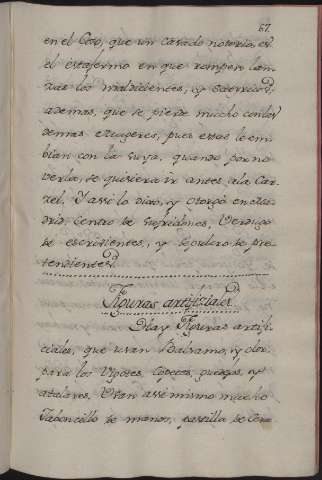 67.
en el Coso, que un casado notorio, es
el estafermo en que rompen lan-
zas los maldicientes, y satericos;
ademas, que se pierde mucho con las
demas mugeres, pues essas le em-
bian con la suya, quando por no
verla, se quisiera ir antes a la Car-
zel. Y assi lo dixo, y otorgo en Ma-
drid, Centro de sufridores, Verdugo
de escrivientes, y sepulcro de pre-
tendientes.
Figuras artificiales.
Hay Figuras artifi-
ciales, que usan Balsamo, y olor
para los Vigotes, Copetes, guedejas, y
aladares. Usan assi mismo mucho
Jaboncillo de manos, pastilla de Cera